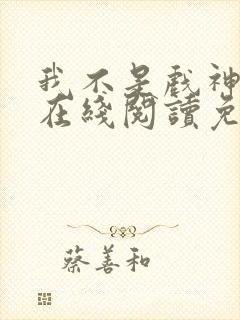 我不是戲神
在綫閱讀免
蔡善和